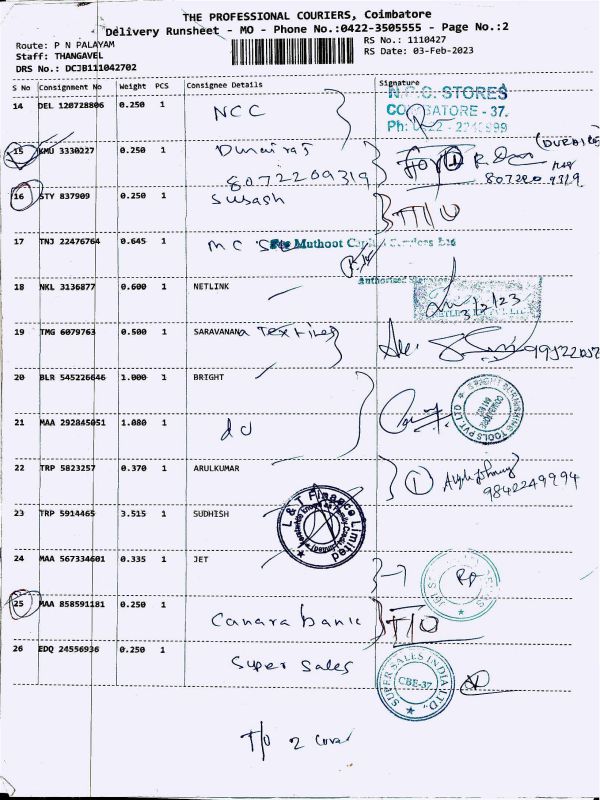 THE PROFESSIONAL COURIERS, Coimbatore
Delivery Runsheet - MO - Phone No.:0422-3505555 - Page No.:2
Route: P N PALAYAM
Staff: THANGAVEL
DRS No.: DCJB111042702
RS No.: 1110427
RS Date: 03-Feb-2023
S No Consignment No Weight PCS Consignee Details Signature
14 DEL 120728806 0.250 1 NCC
STORES
COIMBATORE - 37.
Ph: 0422 -
15 KMU 3330227 0.250 1 Durairaj
8072209319
16 STY 837909 0.250 1 Subash T/O
17 TNJ 22476764 0.645 1 MC
Muthoot Capital Services Ltd
Authorised
18 NKL 3136877 0.600 1 NETLINK 3/2/23
19 TMG 6079763 0.500 1 SARAVANA Textiles
20 BLR 545226646 1.000 1 BRIGHT
21 MAA 292845051 1.080 1 do
22 TRP 5823257 0.370 1 ARULKUMAR
9842249994
23 TRP 5914465 3.515 1 SUDHISH
L & T Finance Limited
24 MAA 567334601 0.335 1 JET
25 MAA 858591181 0.250 1 Canara bank T/O
26 EDQ 24556936 0.250 1 Super Sales
SUPER SALES INDIA LTD.,
CBE-37
T/O 2 cover